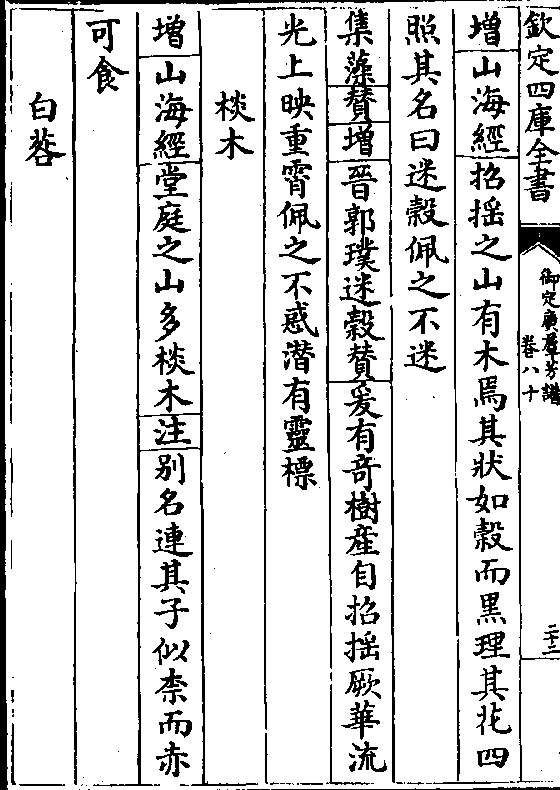 欽定四庫全書
御定廣羣芳譜
卷八十
二十二
增山海經招摇之山有木焉其狀如榖而黒理其花四
照其名曰迷榖佩之不迷
集藻賛增晉郭璞迷榖賛爰有竒樹産自招揺厥華流
光上映重霄佩之不惑潜有靈標
棪木
增山海經堂庭之山多棪木注别名連其子似柰而赤
可食
白䓘